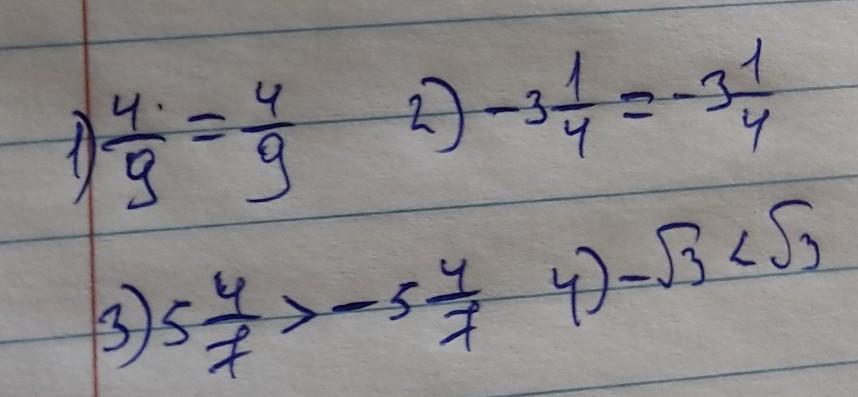 1) 4/9 = 4/9 2) -3 1/4 = -3 1/4
3) 5 4/7 > -5 4/7 4) -√3 < √3